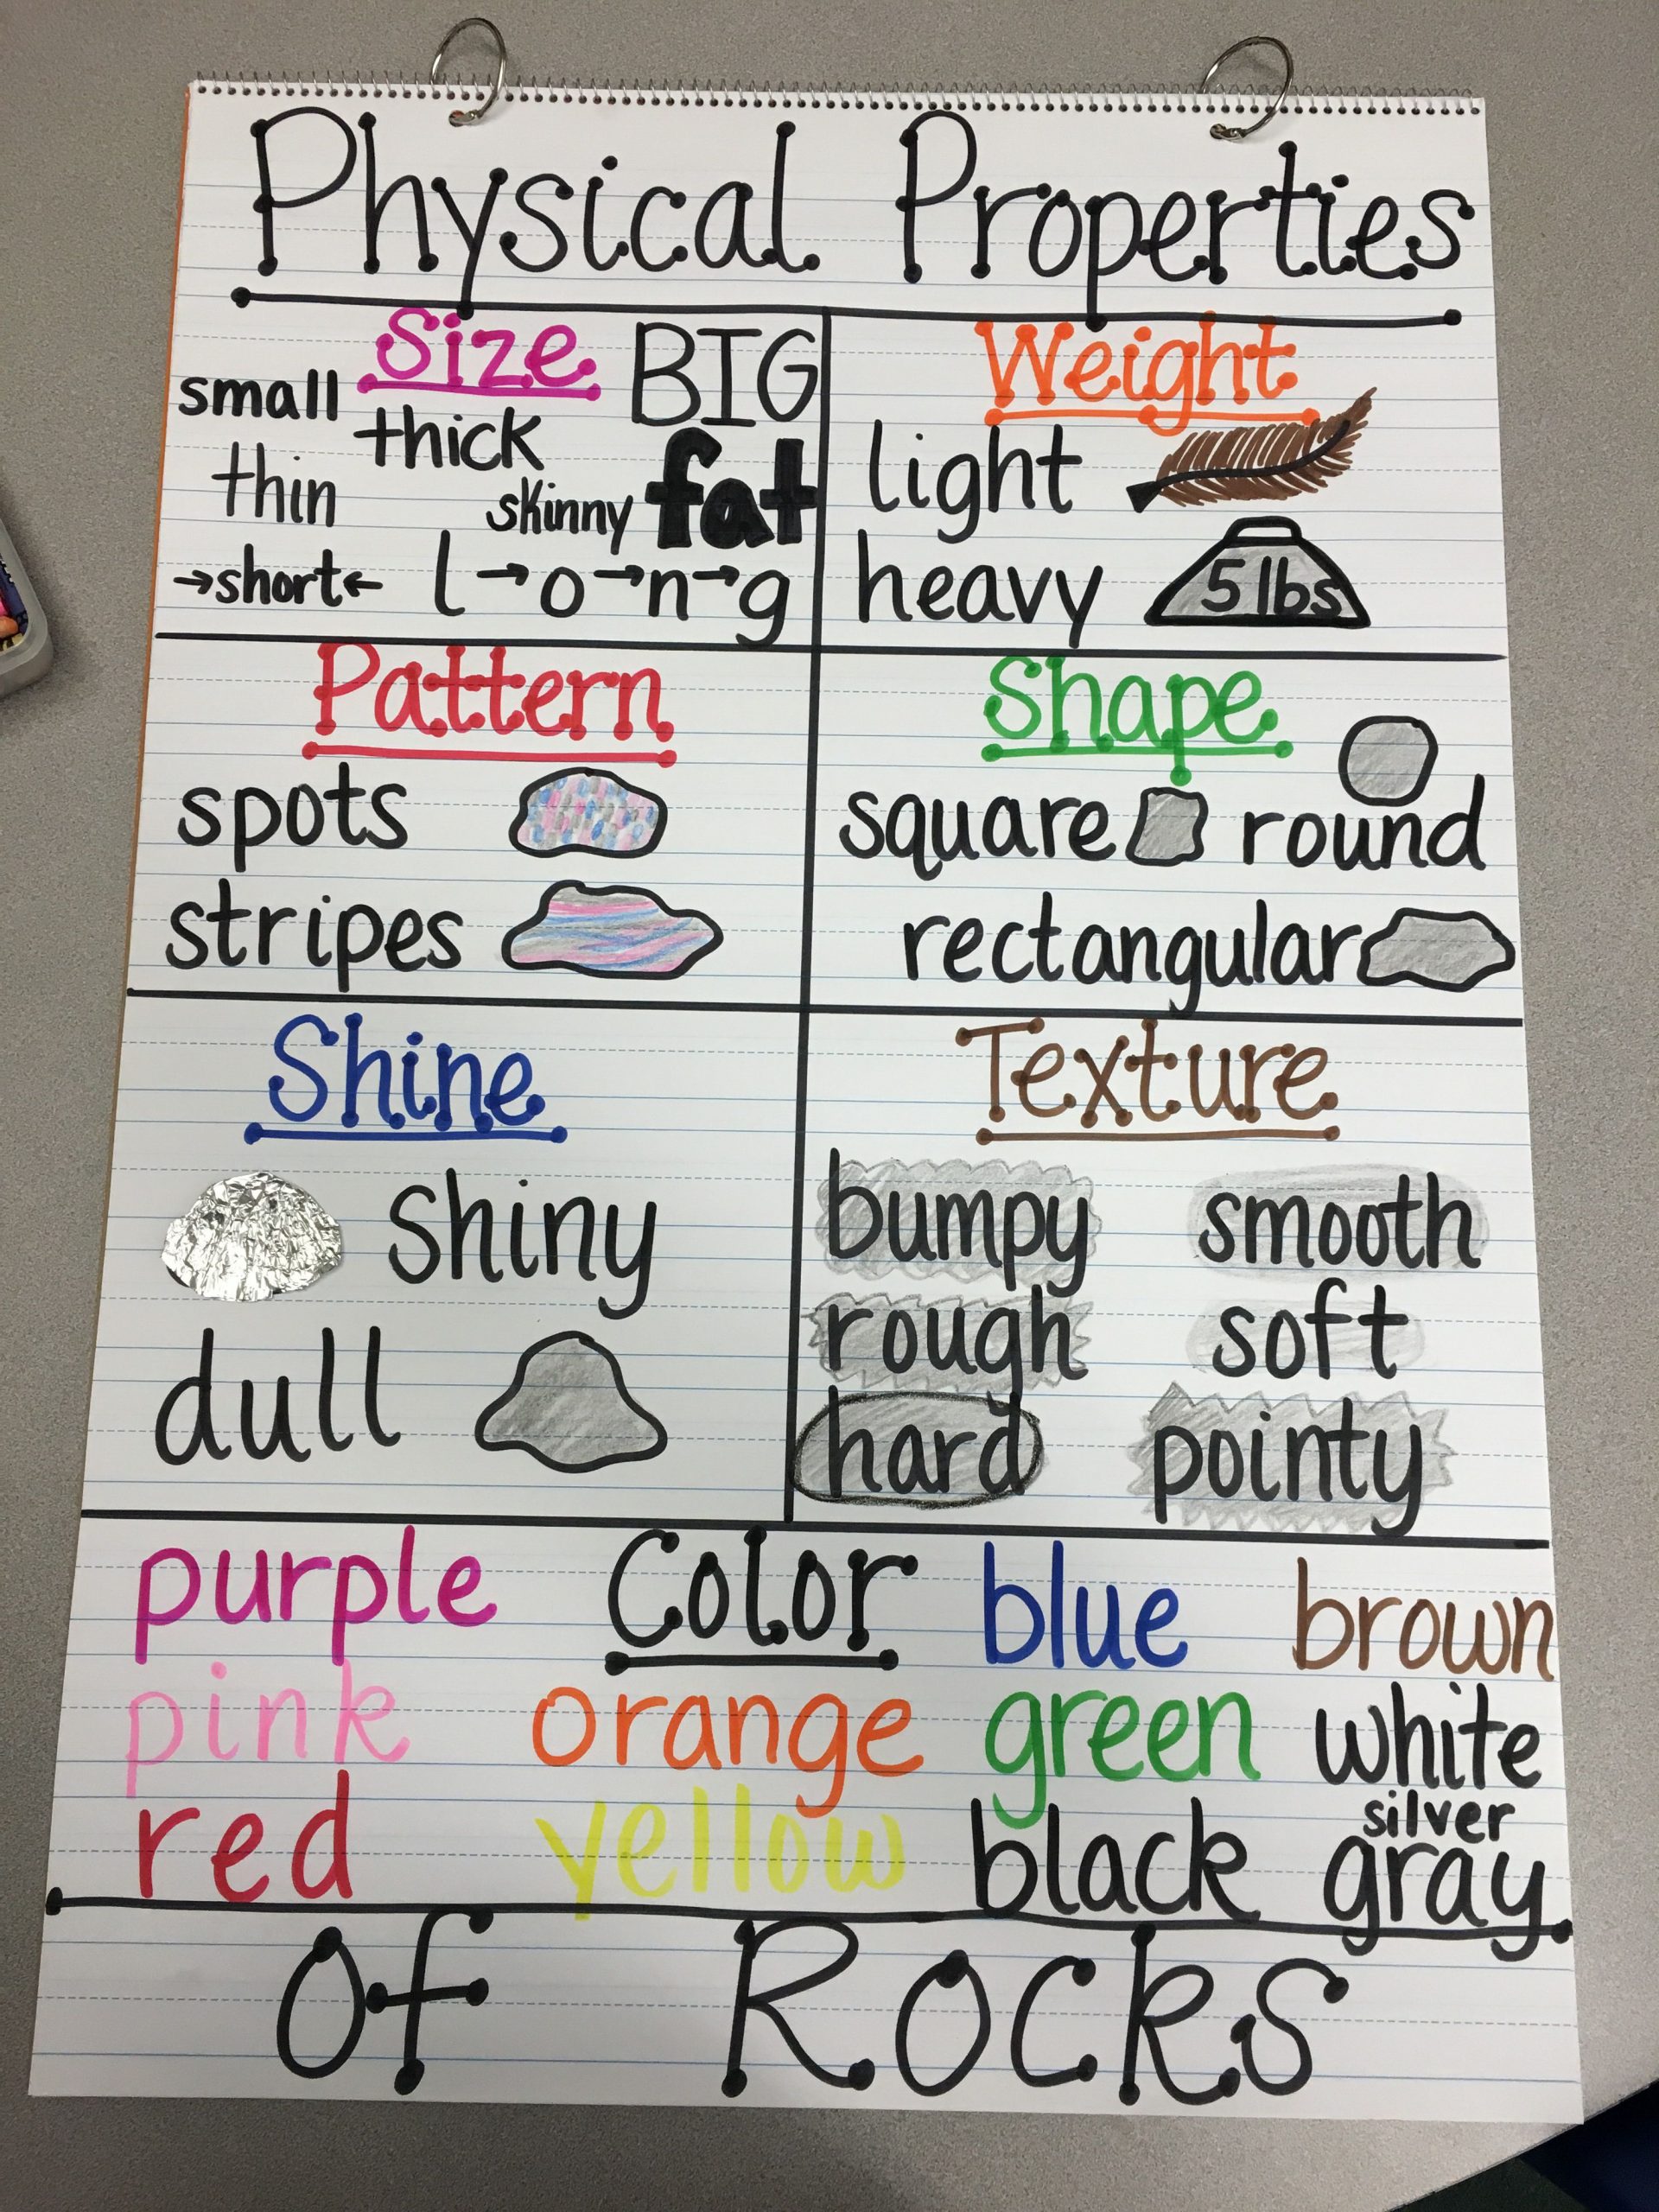 Physical Properties
Size BIG
small thick
thin skinny fat
→short← l→o→n→g
Weight
light
heavy 5 lbs
Pattern
spots
stripes
Shape
square round
rectangular
Shine
shiny
dull
Texture
bumpy smooth
rough soft
hard pointy
purple Color blue brown
pink orange green white
red yellow black silver
gray
Of Rocks